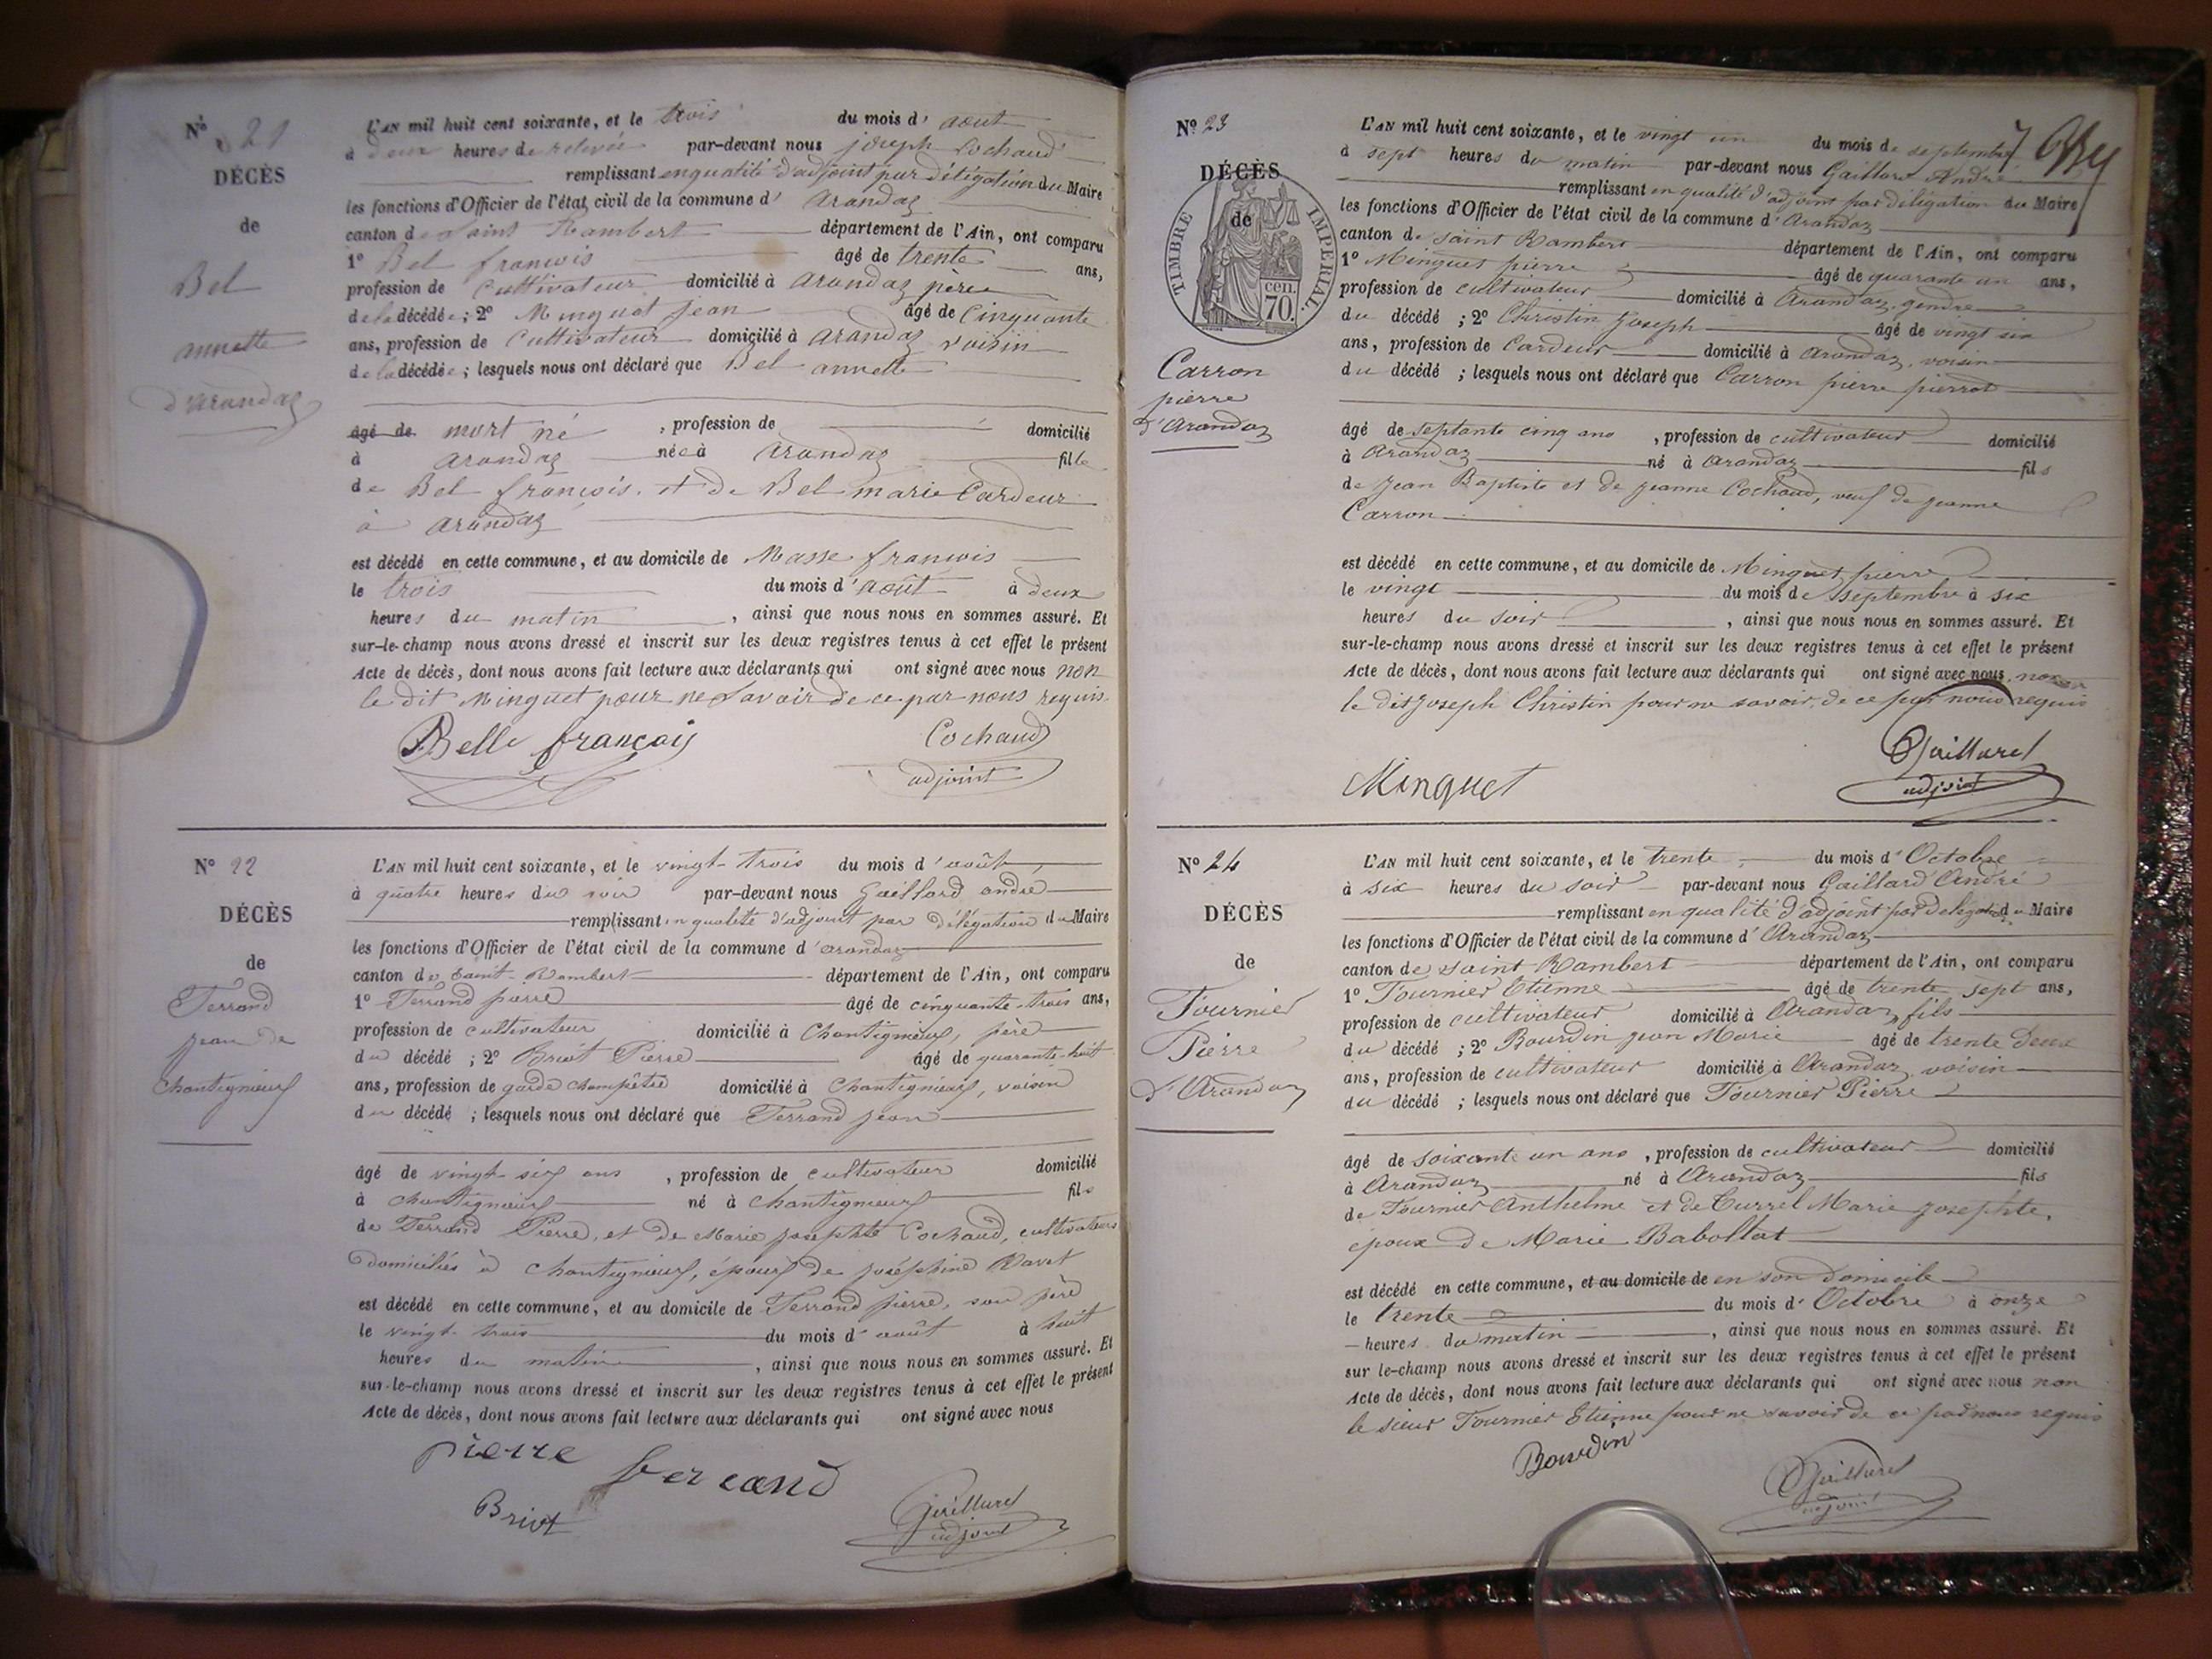 N° 21
DÉCÈS
de
Bel
annette
d'arandaz
L'AN mil huit cent soixante, et le trois du mois d'aout
à deux heures de relevée par-devant nous joseph Cochaud
remplissant en qualité d'adjoint par délégation du Maire
les fonctions d'Officier de l'état civil de la commune d'arandaz
canton de saint Rambert département de l'Ain, ont comparu
1° Bel francois âgé de trente ans,
profession de Cultivateur domicilié à arandaz père
de la décédée; 2° Minguet jean âgé de Cinquante
ans, profession de Cultivateur domicilié à arandaz voisin
de la décédée; lesquels nous ont déclaré que Bel annette
âgé de mort né, profession de domicilié
à arandaz née à arandaz fille
de Bel francois et de Bel marie Cardeur
à arandaz
est décédé en cette commune, et au domicile de Masse francois
le trois du mois d'août à deux
heures du matin, ainsi que nous nous en sommes assuré. Et
sur-le-champ nous avons dressé et inscrit sur les deux registres tenus à cet effet le présent
Acte de décès, dont nous avons fait lecture aux déclarants qui ont signé avec nous non
le dit Minguet pour ne savoir de ce par nous requis
Belle françois Cochaud
adjoint
N° 22
DÉCÈS
de
Ferrand
jean de
Chantignieux
L'AN mil huit cent soixante, et le vingt-trois du mois d'août
à quatre heures du soir par-devant nous Gaillard andré
remplissant en qualité d'adjoint par délégation du Maire
les fonctions d'Officier de l'état civil de la commune d'arandaz
canton de Saint-Rambert département de l'Ain, ont comparu
1° Ferrand pierre âgé de cinquante-trois ans,
profession de cultivateur domicilié à Chantignieux, père
du décédé; 2° Briot Pierre âgé de quarante-huit
ans, profession de garde champêtre domicilié à Chantignieux, voisin
du décédé; lesquels nous ont déclaré que Ferrand jean
âgé de vingt-six ans, profession de cultivateur domicilié
à chantignieux né à chantignieux fils
de Ferrand Pierre, et de Marie josephte Cochaud, cultivateurs
domiciliés à chantignieux, époux de joséphine Ravet
est décédé en cette commune, et au domicile de Ferrand pierre, son père
le vingt-trois du mois d'août à huit
heures du matin, ainsi que nous nous en sommes assuré. Et
sur-le-champ nous avons dressé et inscrit sur les deux registres tenus à cet effet le présent
Acte de décès, dont nous avons fait lecture aux déclarants qui ont signé avec nous
pierre ferrand
Briot Gaillard
adjoint
N° 23
DÉCÈS
de
TIMBRE IMPERIAL
70 cen.
Carron
pierre
d'Arandaz
L'AN mil huit cent soixante, et le vingt un du mois de septembre
à sept heures du matin par-devant nous Gaillard André
remplissant en qualité d'adjoint par délégation du Maire
les fonctions d'Officier de l'état civil de la commune d'Arandaz
canton de saint Rambert département de l'Ain, ont comparu
1° Minguet pierre âgé de quarante un ans,
profession de cultivateur domicilié à Arandaz, gendre
du décédé; 2° Christin Joseph âgé de vingt six
ans, profession de Cardeur domicilié à Arandaz, voisin
du décédé; lesquels nous ont déclaré que Carron pierre pierrot
âgé de septante cinq ans, profession de cultivateur domicilié
à Arandaz né à Arandaz fils
de Jean Baptiste et de jeanne Cochaud, veuf de jeanne
Carron
est décédé en cette commune, et au domicile de Minguet pierre
le vingt du mois de septembre à six
heures du soir, ainsi que nous nous en sommes assuré. Et
sur-le-champ nous avons dressé et inscrit sur les deux registres tenus à cet effet le présent
Acte de décès, dont nous avons fait lecture aux déclarants qui ont signé avec nous, non
le dit Joseph Christin pour ne savoir, de ce par nous requis
Minguet Gaillard
adjoint
N° 24
DÉCÈS
de
Fournier
Pierre
d'Arandaz
L'AN mil huit cent soixante, et le trente du mois d'Octobre
à six heures du soir par-devant nous Gaillard André
remplissant en qualité d'adjoint par délégation du Maire
les fonctions d'Officier de l'état civil de la commune d'Arandaz
canton de saint Rambert département de l'Ain, ont comparu
1° Fournier Etienne âgé de trente sept ans,
profession de cultivateur domicilié à Arandaz, fils
du décédé; 2° Bourdin jean Marie âgé de trente deux
ans, profession de cultivateur domicilié à Arandaz voisin
du décédé; lesquels nous ont déclaré que Fournier Pierre
âgé de soixante un ans, profession de cultivateur domicilié
à Arandaz né à Arandaz fils
de Fournier Anthelme et de Currel Marie josephte,
époux de Marie Babollat
est décédé en cette commune, et au domicile de en son domicile
le trente du mois d'Octobre à onze
heures du matin, ainsi que nous nous en sommes assuré. Et
sur le-champ nous avons dressé et inscrit sur les deux registres tenus à cet effet le présent
Acte de décès, dont nous avons fait lecture aux déclarants qui ont signé avec nous non
le sieur Fournier Etienne pour ne savoir de ce par nous requis
Bourdin
Gaillard
adjoint